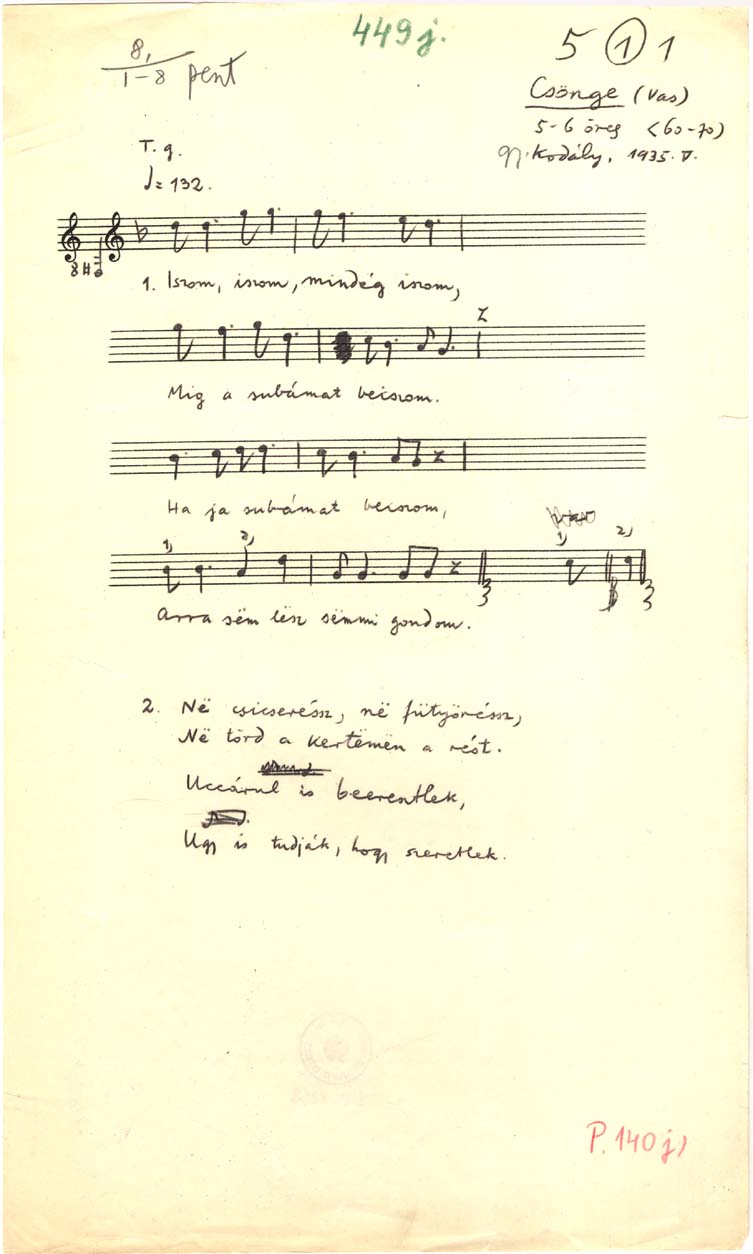 449 j.
8,
1-8 pent
5 (1) 1
Csönge (Vas)
5-6 öreg (60-70)
gy. Kodály, 1935. V.
T. g.
♩= 132.
8
1. Iszom, iszom, mindég iszom,
Mig a subámat beiszom.
Ha ja subámat beiszom,
1) 2) 1) 2)
Arra sëm lësz sëmmi gondom.
2. Në csicseréssz, në fütyöréssz,
Në törd a kertëmën a rést.
Uccárul is beeresztlek,
Ugy is tudják, hogy szeretlek.
P. 140 j)